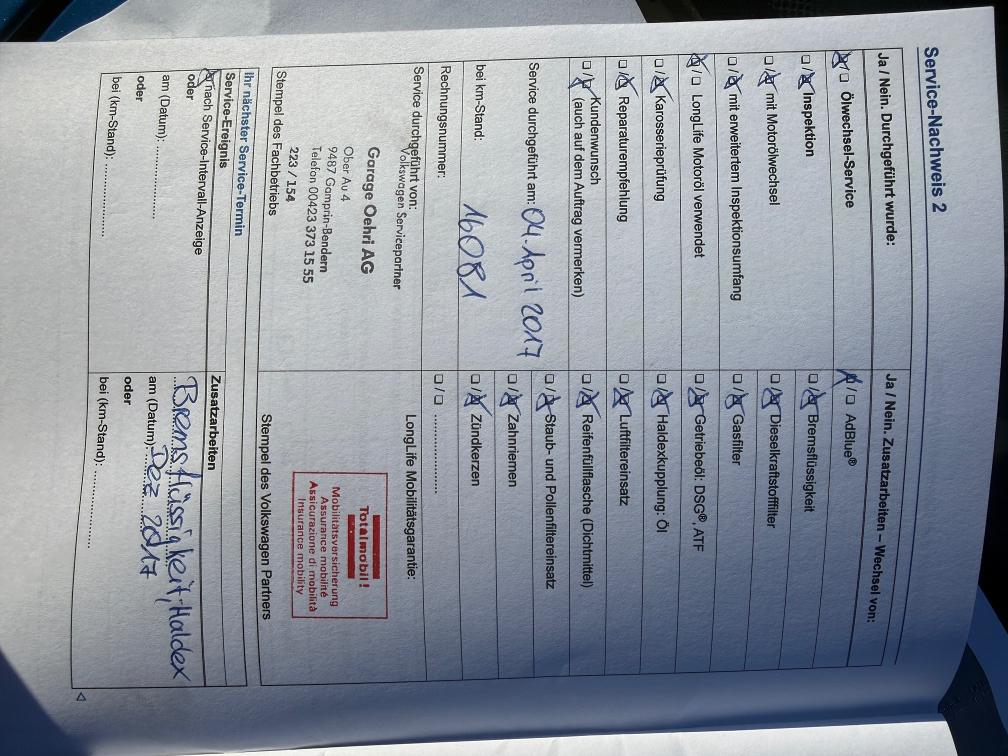 Service-Nachweis 2
Ja / Nein. Durchgeführt wurde:
☒/☐ Ölwechsel-Service
☐/☒ Inspektion
☐/☒ mit Motorölwechsel
☐/☒ mit erweitertem Inspektionsumfang
☒/☐ LongLife Motoröl verwendet
☐/☒ Karosserieprüfung
☐/☒ Reparaturempfehlung
☐/☒ Kundenwunsch
(auch auf dem Auftrag vermerken)
Service durchgeführt am: 04. April 2017
bei km-Stand: 16081
Rechnungsnummer:
Service durchgeführt von:
Volkswagen Servicepartner
Garage Oehri AG
Ober Au 4
9487 Gamprin-Bendern
Telefon 00423 373 15 55
223 / 154
Stempel des Fachbetriebs
Ja / Nein. Zusatzarbeiten – Wechsel von:
☒/☐ AdBlue®
☐/☒ Bremsflüssigkeit
☐/☒ Dieselkraftstofffilter
☐/☒ Gasfilter
☐/☒ Getriebeöl: DSG®, ATF
☐/☒ Haldexkupplung: Öl
☐/☒ Luftfiltereinsatz
☐/☒ Reifenfüllflasche (Dichtmittel)
☐/☒ Staub- und Pollenfiltereinsatz
☐/☒ Zahnriemen
☐/☒ Zündkerzen
☐/☐ ................
LongLife Mobilitätsgarantie:
Totalmobil!
Mobilitätsversicherung
Assurance mobilité
Assicurazione di mobilità
Insurance mobility
Stempel des Volkswagen Partners
Ihr nächster Service-Termin
Service-Ereignis
☒ nach Service-Intervall-Anzeige
oder
am (Datum): ................
oder
bei (km-Stand): ................
Zusatzarbeiten
Bremsflüssigkeit, Haldex
am (Datum): Dez 2017
oder
bei (km-Stand): ................